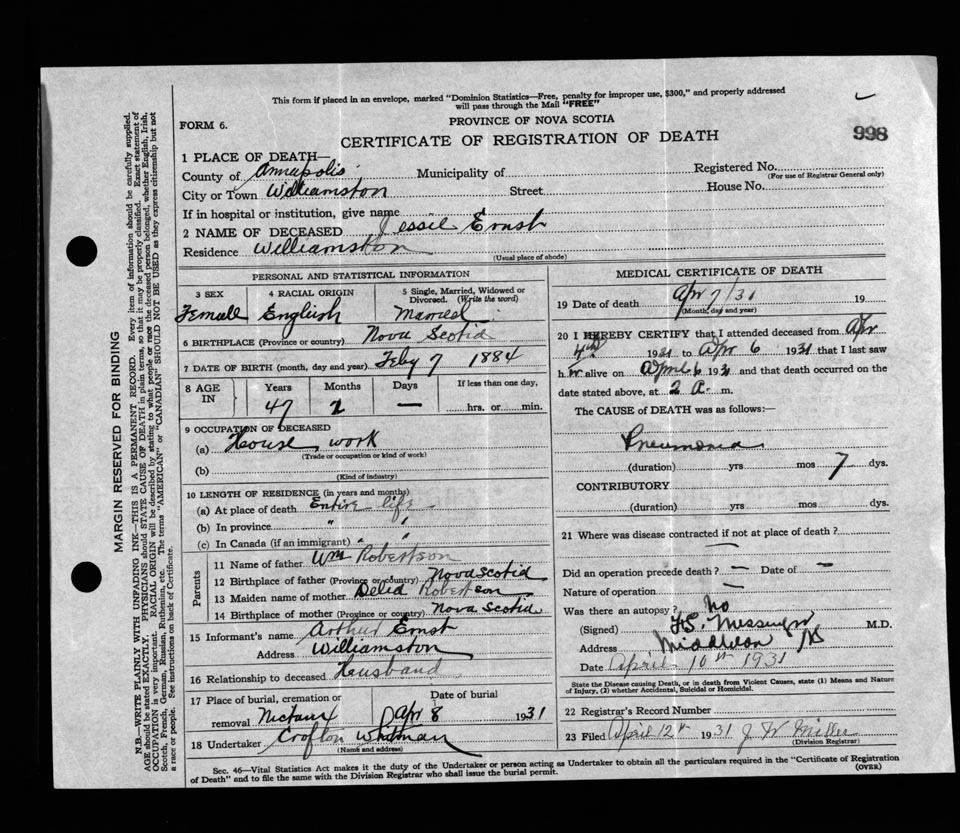 This form if placed in an envelope, marked "Dominion Statistics—Free, penalty for improper use, $300," and properly addressed
will pass through the Mail "FREE"
PROVINCE OF NOVA SCOTIA
FORM 6.
CERTIFICATE OF REGISTRATION OF DEATH
998
1 PLACE OF DEATH—
County of Annapolis Municipality of Registered No.
(For use of Registrar General only)
City or Town Williamston Street House No.
If in hospital or institution, give name
2 NAME OF DECEASED Jessie Ernst
Residence Williamston
(Usual place of abode)
PERSONAL AND STATISTICAL INFORMATION
3 SEX 4 RACIAL ORIGIN 5 Single, Married, Widowed or Divorced. (Write the word)
Female English Married
6 BIRTHPLACE (Province or country) Nova Scotia
7 DATE OF BIRTH (month, day and year) Feby 7 1884
8 AGE IN Years Months Days If less than one day,
47 2 — hrs. or min.
9 OCCUPATION OF DECEASED
(a) House work
(Trade or occupation or kind of work)
(b)
(Kind of industry)
10 LENGTH OF RESIDENCE (in years and months)
(a) At place of death Entire life
(b) In province " "
(c) In Canada (if an immigrant) " "
Parents
11 Name of father Wm Robertson
12 Birthplace of father (Province or country) Nova Scotia
13 Maiden name of mother Delia Robertson
14 Birthplace of mother (Province or country) Nova Scotia
15 Informant's name Arthur Ernst
Address Williamston
16 Relationship to deceased Husband
17 Place of burial, cremation or Date of burial
removal Nictaux Apr 8 1931
18 Undertaker Crofton Whitman
(Name and address)
MEDICAL CERTIFICATE OF DEATH
19 Date of death Apr 7/31 19
(Month, day and year)
20 I HEREBY CERTIFY that I attended deceased from Apr
4th 1931 to Apr 6 1931 that I last saw
h er alive on April 6 1931 and that death occurred on the
date stated above, at 2 a. m.
The CAUSE of DEATH was as follows:—
Pneumonia
(duration) yrs mos 7 dys.
CONTRIBUTORY
(duration) yrs mos dys.
21 Where was disease contracted if not at place of death?
—
Did an operation precede death? — Date of —
Nature of operation —
Was there an autopsy? No
(Signed) F.S. Messenger M.D.
Address Middleton NS
Date April 10th 1931
State the Disease causing Death, or in death from Violent Causes, state (1) Means and Nature
of Injury, (2) whether Accidental, Suicidal or Homicidal.
22 Registrar's Record Number
23 Filed April 12th 1931 J W Miller
(Division Registrar)
Sec. 46—Vital Statistics Act makes it the duty of the Undertaker or person acting as Undertaker to obtain all the particulars required in the "Certificate of Registration
of Death" and to file the same with the Division Registrar who shall issue the burial permit. (OVER)
MARGIN RESERVED FOR BINDING
N.B.—WRITE PLAINLY WITH UNFADING INK—THIS IS A PERMANENT RECORD. Every item of information should be carefully supplied.
AGE should be stated EXACTLY. PHYSICIANS should STATE CAUSE OF DEATH in plain terms, so that it may be properly classified. Exact statement of
OCCUPATION is very important. RACIAL ORIGIN will be described by stating to what people or race the deceased person belonged, whether English, Irish,
Scotch, French, German, Russian, Ruthenian, etc. The terms "AMERICAN" or "CANADIAN" SHOULD NOT BE USED as they express citizenship but not
a race or people. See instructions on back of Certificate.